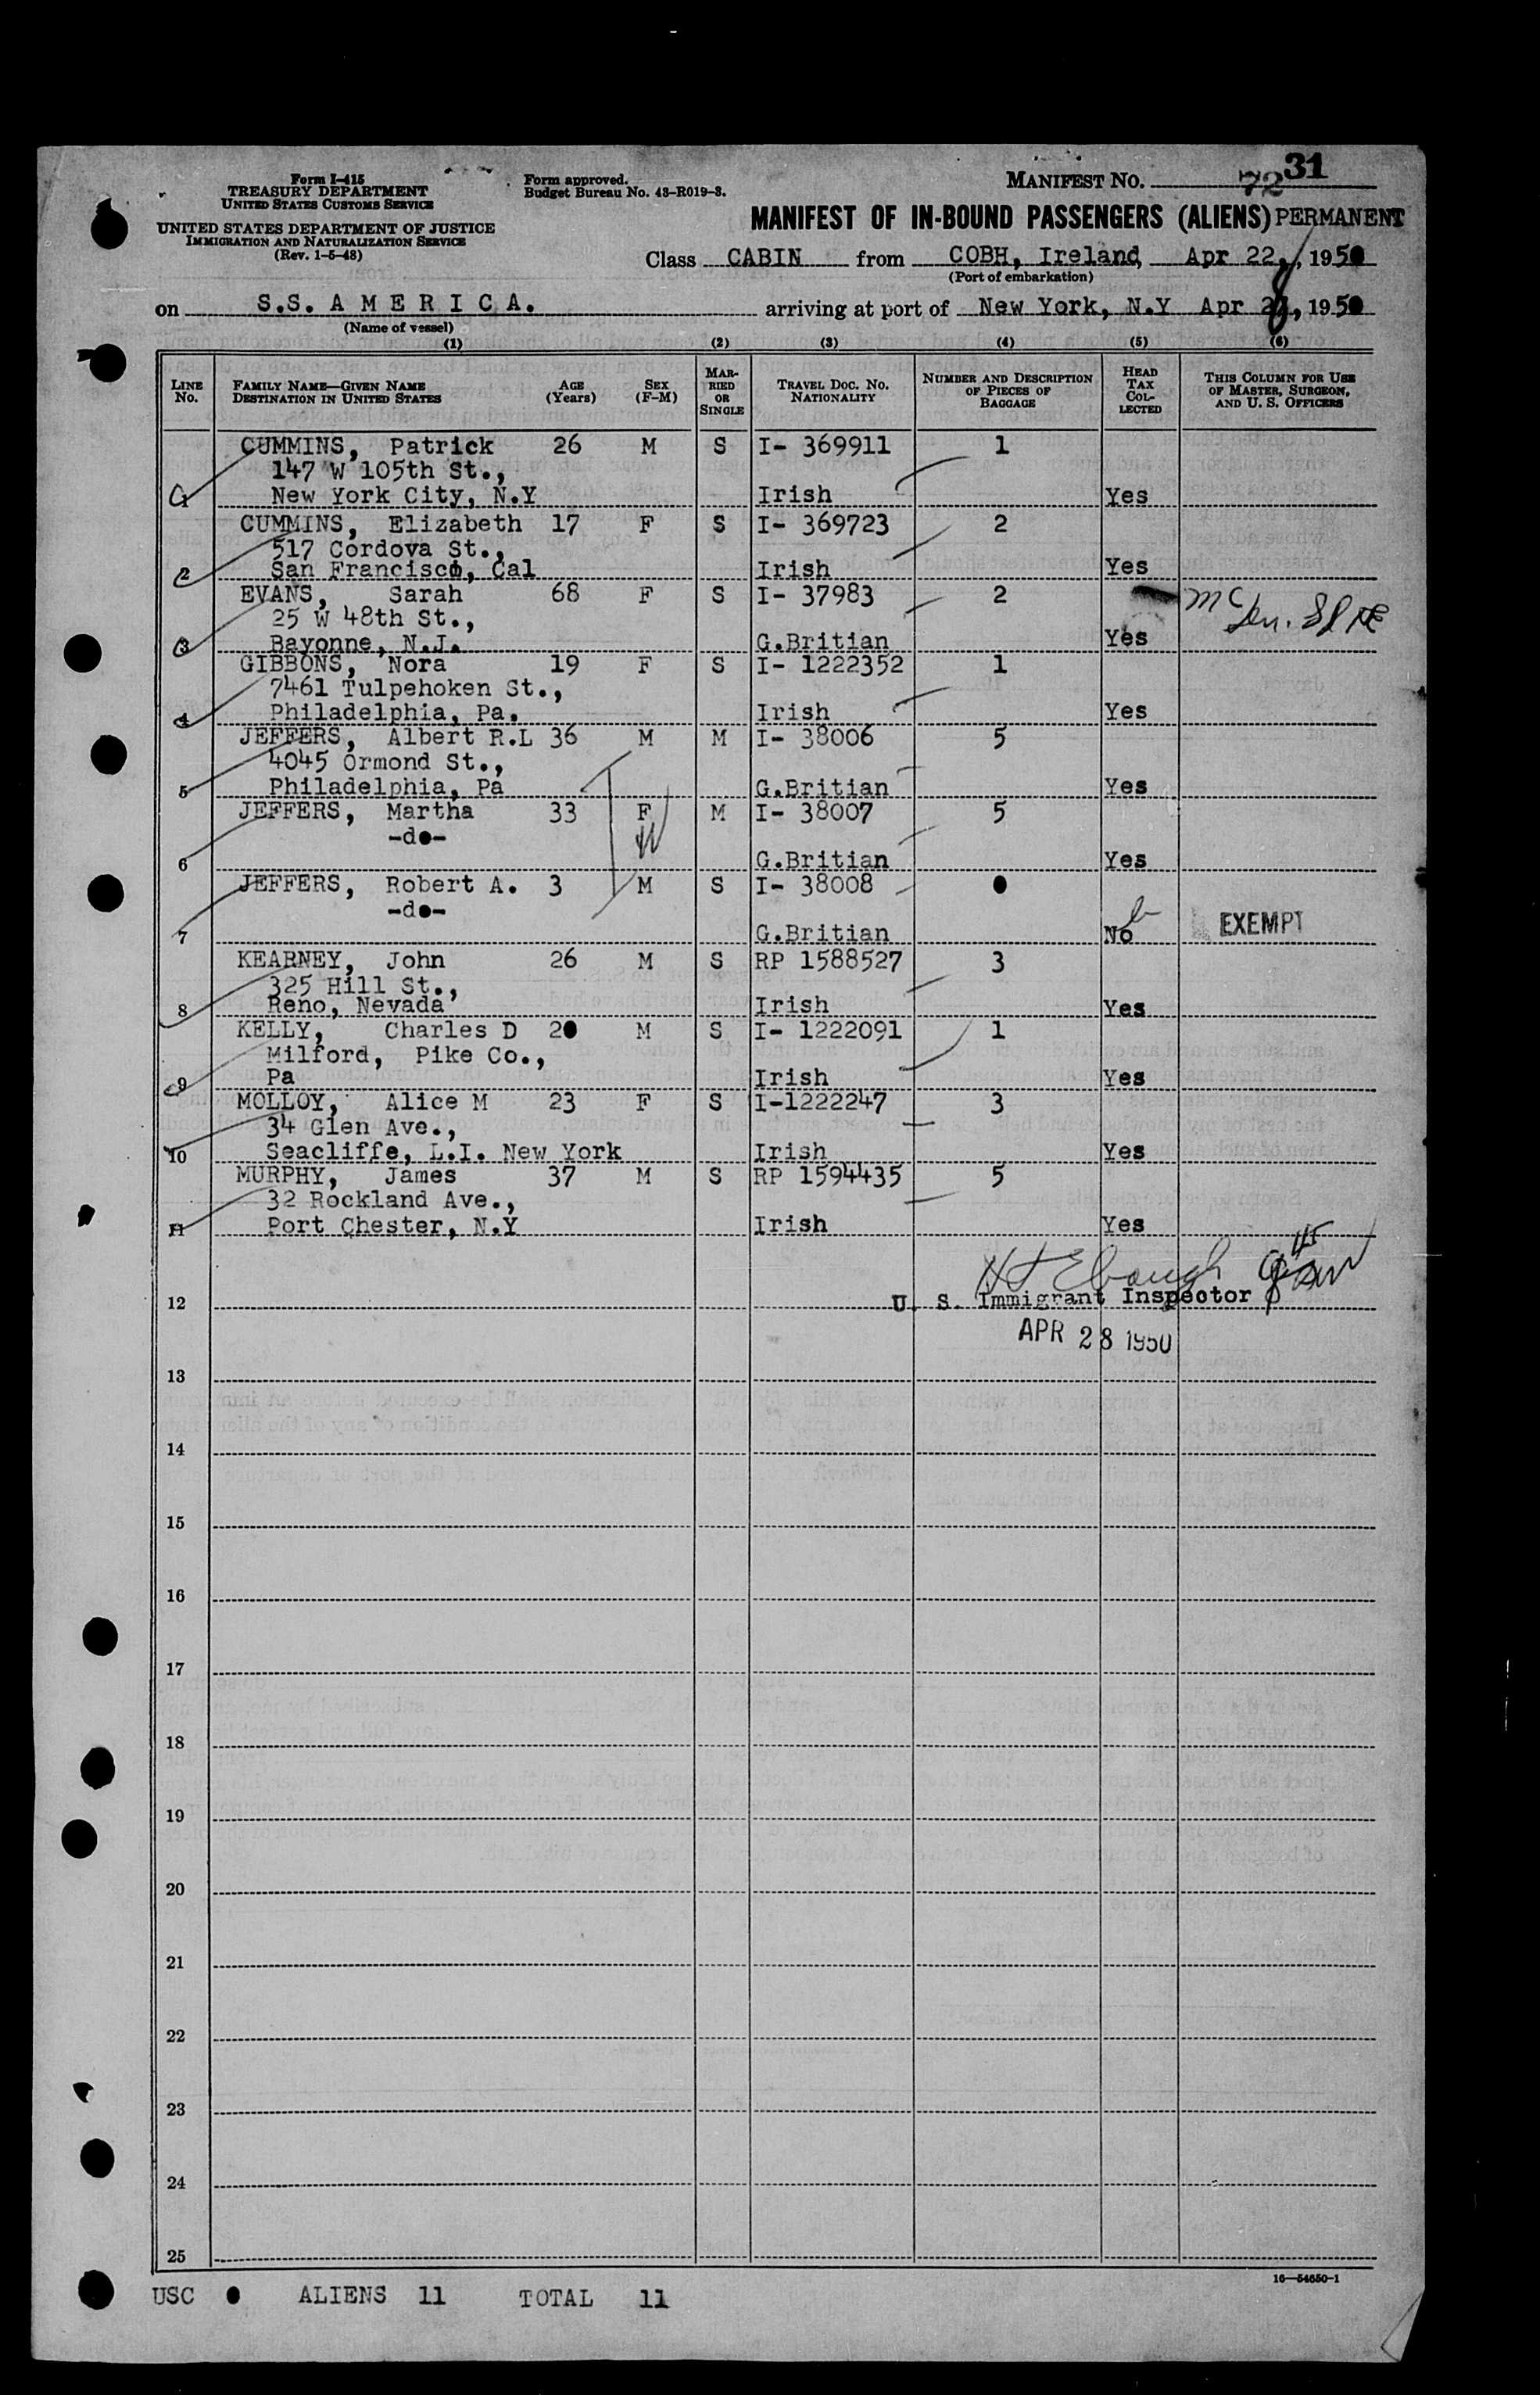 31
Form I-415
TREASURY DEPARTMENT
UNITED STATES CUSTOMS SERVICE
UNITED STATES DEPARTMENT OF JUSTICE
IMMIGRATION AND NATURALIZATION SERVICE
(Rev. 1-5-48)
Form approved.
Budget Bureau No. 43-R019-3.
MANIFEST NO. 72
MANIFEST OF IN-BOUND PASSENGERS (ALIENS) PERMANENT
Class CABIN from COBH, Ireland, Apr 22, 1950
(Port of embarkation)
on S.S. A M E R I C A. arriving at port of New York, N.Y Apr 28, 1950
(Name of vessel)
(1) (2) (3) (4) (5) (6)
LINE No. FAMILY NAME—GIVEN NAME DESTINATION IN UNITED STATES AGE (Years) SEX (F-M) MARRIED OR SINGLE TRAVEL DOC. NO. NATIONALITY NUMBER AND DESCRIPTION OF PIECES OF BAGGAGE HEAD TAX COLLECTED THIS COLUMN FOR USE OF MASTER, SURGEON, AND U. S. OFFICERS
CUMMINS, Patrick 26 M S I- 369911 1
147 W 105th St.,
1 New York City, N.Y Irish Yes
CUMMINS, Elizabeth 17 F S I- 369723 2
517 Cordova St.,
2 San Francisco, Cal Irish Yes
EVANS, Sarah 68 F S I- 37983 2
25 W 48th St.,
3 Bayonne, N.J. G.Britian Yes
GIBBONS, Nora 19 F S I- 1222352 1
7461 Tulpehoken St.,
4 Philadelphia, Pa. Irish Yes
JEFFERS, Albert R.L 36 M M I- 38006 5
4045 Ormond St.,
5 Philadelphia, Pa G.Britian Yes
JEFFERS, Martha 33 F M I- 38007 5
-do-
6 G.Britian Yes
JEFFERS, Robert A. 3 M S I- 38008 0
-do-
7 G.Britian No EXEMPT
KEARNEY, John 26 M S RP 1588527 3
325 Hill St.,
8 Reno, Nevada Irish Yes
KELLY, Charles D 20 M S I- 1222091 1
Milford, Pike Co.,
9 Pa Irish Yes
MOLLOY, Alice M 23 F S I-1222247 3
34 Glen Ave.,
10 Seacliffe, L.I. New York Irish Yes
MURPHY, James 37 M S RP 1594435 5
32 Rockland Ave.,
11 Port Chester, N.Y Irish Yes
12 U. S. Immigrant Inspector
APR 28 1950
13
14
15
16
17
18
19
20
21
22
23
24
25
16—54650-1
USC 0 ALIENS 11 TOTAL 11